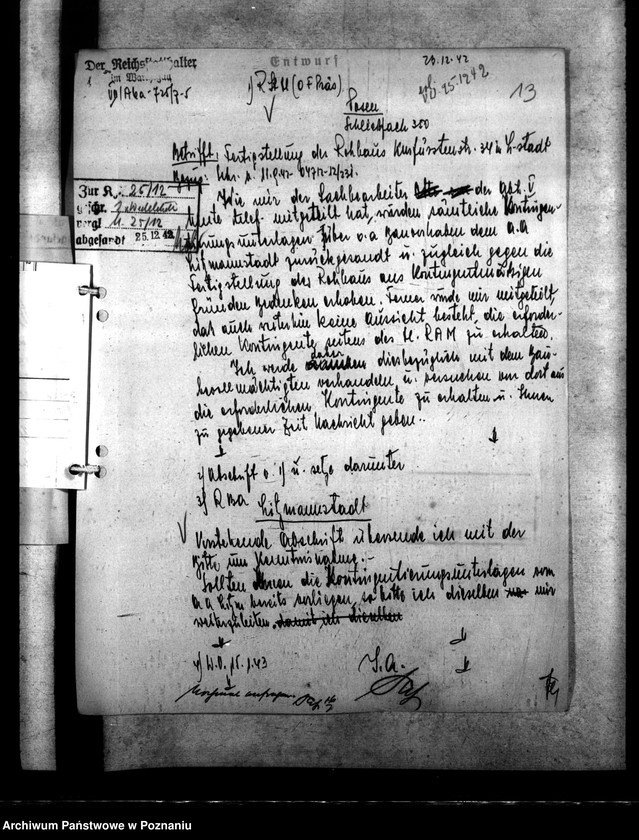 Der Reichsstatthalter
im Warthegau
Entwurf
23.12.42
25.12.42
13
Posen
Schließfach 350
Betrifft: Fertigstellung des Rohbaus Kurfürstenstr. 34 in L-stadt
Zur K. 25/12
abgesandt 25.12.42
Wie mir der Sachbearbeiter der Abt. V
heute telef. mitgeteilt hat, würden sämtliche Kontingen-
tierungsunterlagen über o.a. Bauvorhaben dem A.A
Litzmannstadt zurückgesandt u. zugleich gegen die
Fertigstellung des Rohbaus aus Kontingentmäßigen
Gründen Bedenken erhoben. Ferner wurde mir mitgeteilt,
daß auch weiterhin keine Aussicht besteht, die erforder-
lichen Kontingente seitens des H. RAM zu erhalten.
Ich werde daher diesbezüglich mit dem Bau-
bevollmächtigten verhandeln u. versuchen von dort aus
die erforderlichen Kontingente zu erhalten u. Ihnen
zu gegebener Zeit Nachricht geben.
2) Abschrift v. 1) u. setze darunter
3) RBA
Litzmannstadt
Vorstehende Abschrift übersende ich mit der
Bitte um Kenntnisnahme.-
Sollten Ihnen die Kontingentierungsunterlagen vom
A.A Litzm. bereits vorliegen, so bitte ich dieselben mir
weiterzuleiten, damit ich dieselben
4) W.V. 15.1.43
I.A.
Archiwum Państwowe w Poznaniu